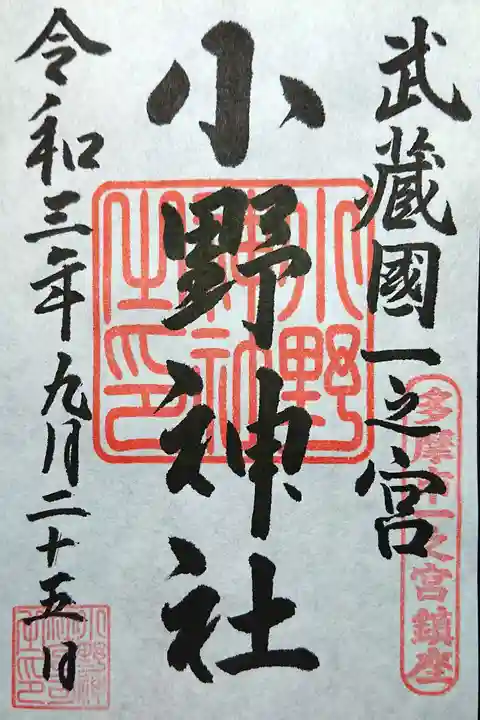 武蔵國一之宮
多摩市一之宮鎮座
小野神社
小野神社之印
令和三年九月二十五日
小野神社之印